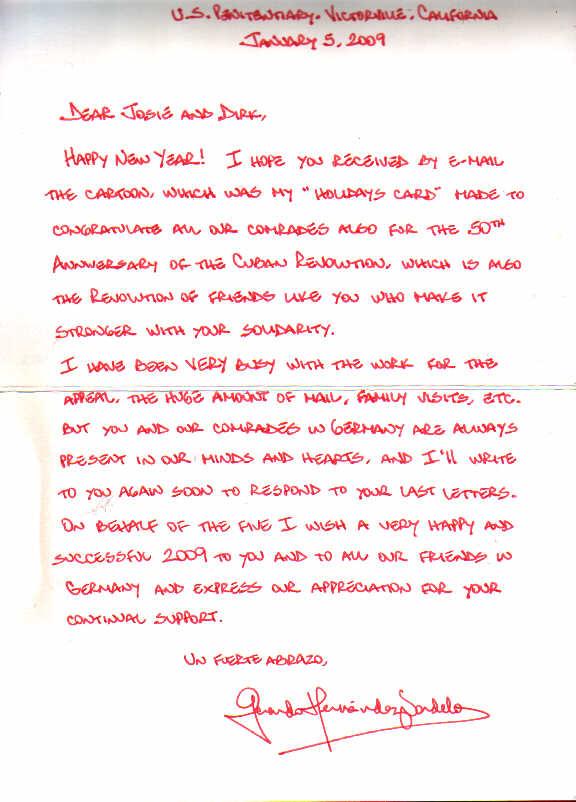 U.S. PENITENTIARY. VICTORVILLE. CALIFORNIA
JANUARY 5, 2009
DEAR JOSIE AND DIRK,
HAPPY NEW YEAR! I HOPE YOU RECEIVED BY E-MAIL
THE CARTOON, WHICH WAS MY "HOLIDAYS CARD" MADE TO
CONGRATULATE ALL OUR COMRADES ALSO FOR THE 50TH
ANNIVERSARY OF THE CUBAN REVOLUTION, WHICH IS ALSO
THE REVOLUTION OF FRIENDS LIKE YOU WHO MAKE IT
STRONGER WITH YOUR SOLIDARITY.
I HAVE BEEN VERY BUSY WITH THE WORK FOR THE
APPEAL, THE HUGE AMOUNT OF MAIL, FAMILY VISITS, ETC.
BUT YOU AND OUR COMRADES IN GERMANY ARE ALWAYS
PRESENT IN OUR MINDS AND HEARTS, AND I'LL WRITE
TO YOU AGAIN SOON TO RESPOND TO YOUR LAST LETTERS.
ON BEHALF OF THE FIVE I WISH A VERY HAPPY AND
SUCCESSFUL 2009 TO YOU AND TO ALL OUR FRIENDS IN
GERMANY AND EXPRESS OUR APPRECIATION FOR YOUR
CONTINUAL SUPPORT.
UN FUERTE ABRAZO,
Gerardo Hernández Nordelo